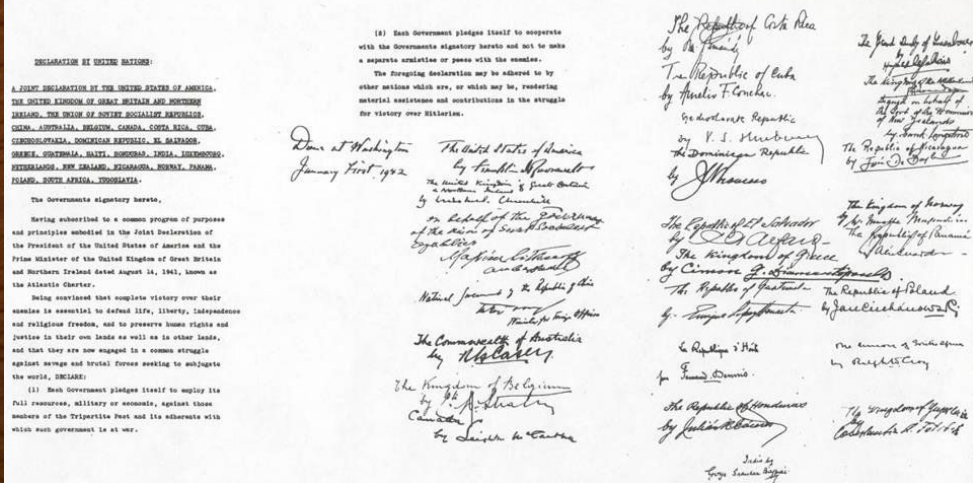 DECLARATION BY UNITED NATIONS:
A JOINT DECLARATION BY THE UNITED STATES OF AMERICA,
THE UNITED KINGDOM OF GREAT BRITAIN AND NORTHERN
IRELAND, THE UNION OF SOVIET SOCIALIST REPUBLICS,
CHINA, AUSTRALIA, BELGIUM, CANADA, COSTA RICA, CUBA,
CZECHOSLOVAKIA, DOMINICAN REPUBLIC, EL SALVADOR,
GREECE, GUATEMALA, HAITI, HONDURAS, INDIA, LUXEMBOURG,
NETHERLANDS, NEW ZEALAND, NICARAGUA, NORWAY, PANAMA,
POLAND, SOUTH AFRICA, YUGOSLAVIA.
The Governments signatory hereto,
Having subscribed to a common program of purposes
and principles embodied in the Joint Declaration of
the President of the United States of America and the
Prime Minister of the United Kingdom of Great Britain
and Northern Ireland dated August 14, 1941, known as
the Atlantic Charter.
Being convinced that complete victory over their
enemies is essential to defend life, liberty, independence
and religious freedom, and to preserve human rights and
justice in their own lands as well as in other lands,
and that they are now engaged in a common struggle
against savage and brutal forces seeking to subjugate
the world, DECLARE:
(1) Each Government pledges itself to employ its
full resources, military or economic, against those
members of the Tripartite Pact and its adherents with
which such government is at war.
(2) Each Government pledges itself to cooperate
with the Governments signatory hereto and not to make
a separate armistice or peace with the enemies.
The foregoing declaration may be adhered to by
other nations which are, or which may be, rendering
material assistance and contributions in the struggle
for victory over Hitlerism.
Done at Washington
January First, 1942
The United States of America
by Franklin D Roosevelt
The United Kingdom of Great Britain
& Northern Ireland
by Winston Churchill
on behalf of the Government
of the Union of Soviet Socialist
Republics
Maxim Litvinoff
Ambassador
National Government of the Republic of China
Minister for Foreign Affairs
The Commonwealth of Australia
by R G Casey
The Kingdom of Belgium
by
Canada
by Leighton McCarthy
The Republic of Costa Rica
by
The Republic of Cuba
by Aurelio F. Concheso
Republic
by V. S. Hurban
The Dominican Republic
by
The Republic of El Salvador
by C A Alfaro
The Kingdom of Greece
by Cimon G. Diamantopoulos
The Republic of Guatemala
by
La Republique d'Haiti
par Fernand Dennis
The Republic of Honduras
by Julian R Caceres
India by
The Grand Duchy of Luxembourg
by
The Kingdom of the Netherlands
Signed on behalf of
the Govt of the Dominion
of New Zealand
by Frank Langstone
The Republic of Nicaragua
by
The Kingdom of Norway
by
The Republic of Panama
by
The Republic of Poland
by Jan Ciechanowski
The Union of South Africa
by Ralph W Close
The Kingdom of Yugoslavia
by